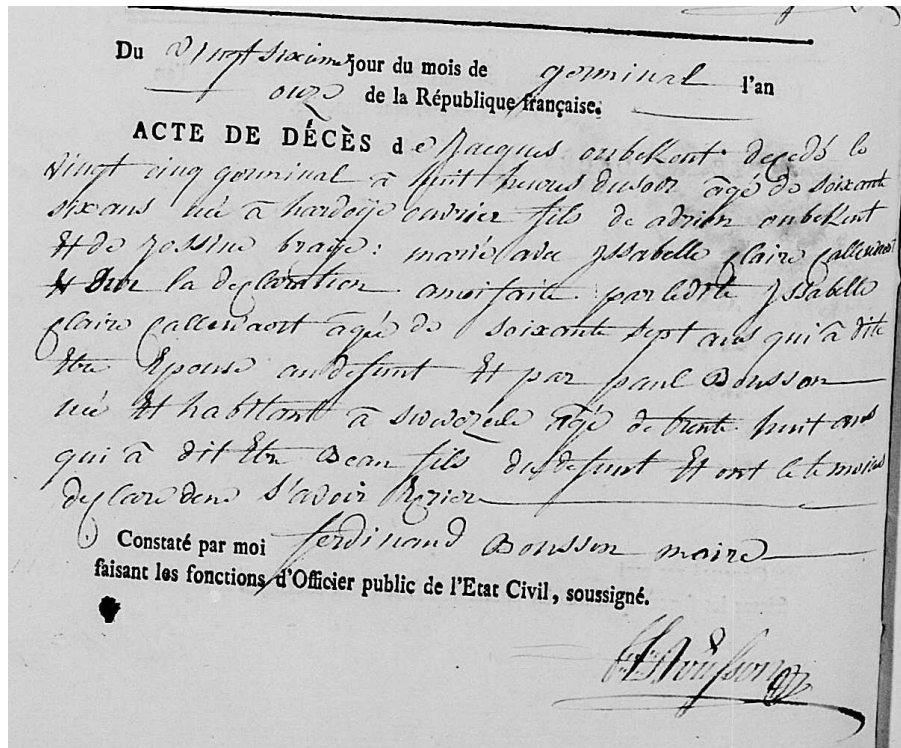 Du vingt sixieme jour du mois de germinal l'an
onze de la République française.
ACTE DE DÉCÈS de Jacques onbekent decedé le
vingt cinq germinal a huit heures du soir agé de soixante
six ans né à hardoije ouvrier fils de adrien onbekent
Et de Jossine braye : marié avec Issabelle Claire Callewaert
Et Sur la declaration a moi faite par ledite Issabelle
Claire Callewaert agée de soixante sept ans qui à dite
Etre Epouse au defunt Et par paul Bousson
né Et habitant à swevezeele agé de trente huit ans
qui à dit Etre Beau fils du defunt Et ont le temoins
declare de ne s'avoir
Constaté par moi ferdinand Bousson maire
faisant les fonctions d'Officier public de l'Etat Civil, soussigné.
F. Bousson